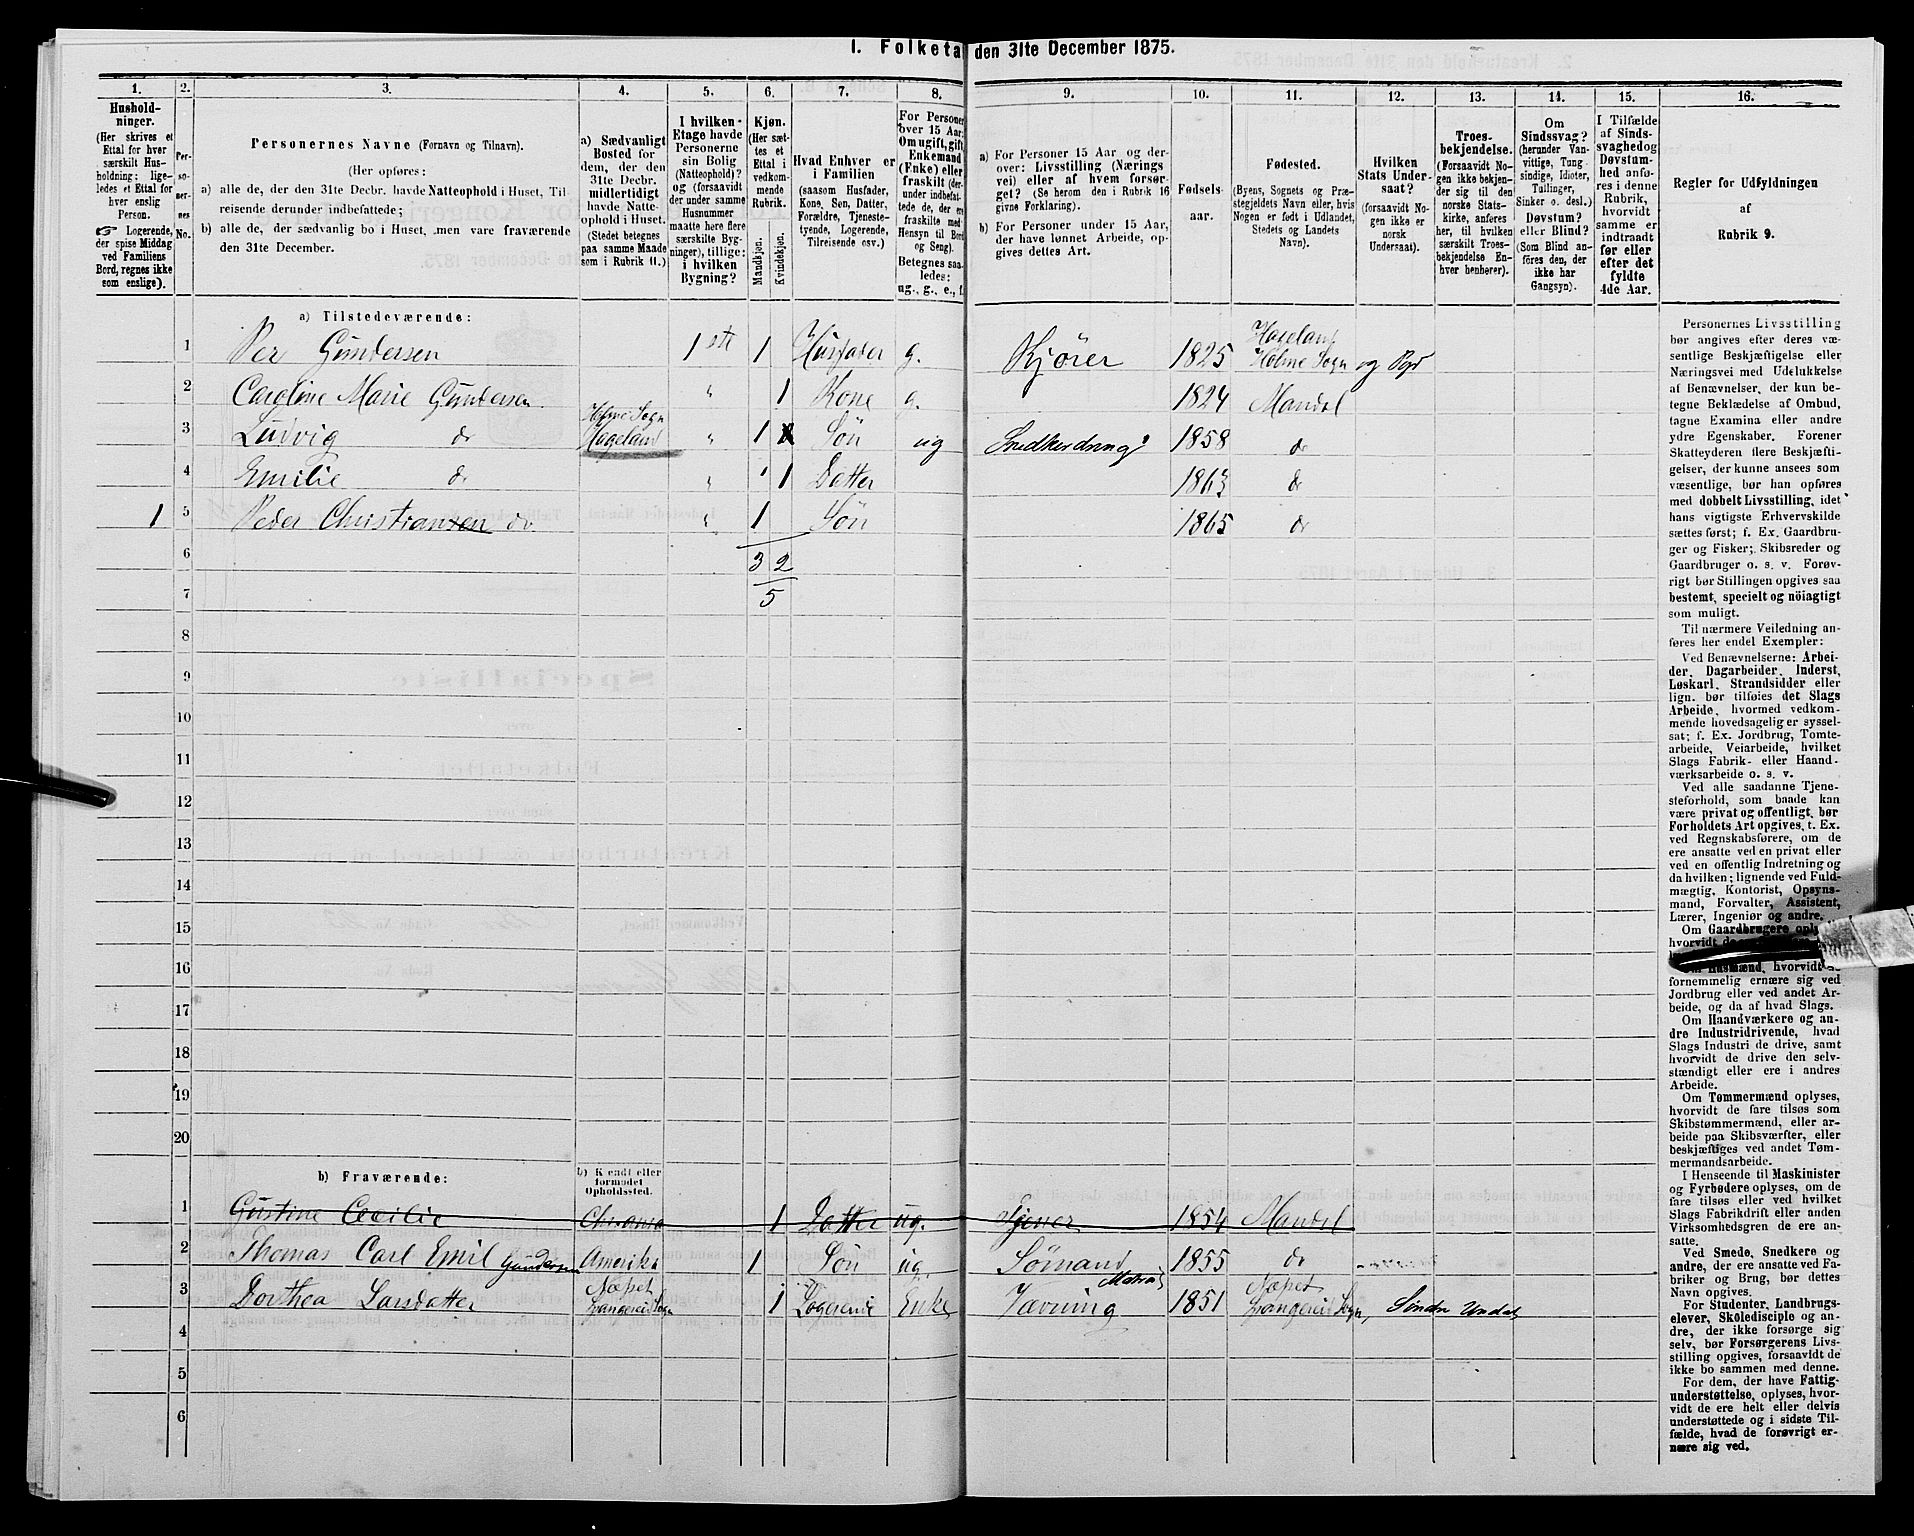 1. Folketa den 31te December 1875.
1. 2. 3. 4. 5. 6. 7. 8. 9. 10. 11. 12. 13. 14. 15. 16.
Hushold-
ninger.
(Her skrives et
Ettal for hver
særskilt Hus-
holdning; lige-
ledes et Ettal for
hver enslig
Person.
☞ Logerende,
der spise Middag
ved Familiens
Bord, regnes ikke
som enslige).
Per-
so-
ner-
nes
No.
Personernes Navne (Fornavn og Tilnavn).
(Her opføres:
a) alle de, der den 31te Decbr. havde Natteophold i Huset, Til-
reisende derunder indbefattede;
b) alle de, der sædvanlig bo i Huset, men vare fraværende
den 31te December.
a) Sædvanligt
Bosted for
dem, der den
31te Decbr.
midlertidigt
havde Natte-
ophold i Huset.
(Stedet betegnes
paa samme Maade
som i Rubrik 11.)
I hvilken
Etage havde
Personerne
sin Bolig
(Natteophold)?
og (forsaavidt
der under samme
Husnummer
maatte høre flere
særskilte Byg-
ninger), tillige:
i hvilken
Bygning?
Kjøn.
(Her sæt-
tes et
Ettal i
vedkom-
mende
Rubrik.
Mandkjøn.
Kvindekjøn.
Hvad Enhver er
i Familien
(saasom Husfader,
Kone, Søn, Datter,
Forældre, Tjeneste-
tyende, Logerende,
Tilreisende osv.)
For Persone
over 15 Aar:
Om ugift, gift,
Enkemand
(Enke) eller
fraskilt (der-
under indbefat-
tede de, der ere
fraskilte med
Hensyn til Bord
og Seng).
Betegnes saa-
ledes:
ug., g., e., f.
a) For Personer 15 Aar og der-
over: Livsstilling (Nærings
vei) eller af hvem forsør-
get? (Se herom den i Rubrik 16
givne Forklaring).
b) For Personer under 15 Aar,
der have lønnet Arbeide, op-
gives dettes Art.
Fødsels-
aar.
Fødested.
(Byens, Sognets og Præ-
stegjeldets Navn eller, hvis
Nogen er født i Udlandet,
Stedets og Landets
Navn).
Hvilken
Stats Under-
saat?
(forsaavidt No-
gen ikke er
norsk
Undersaat).
Troes-
bekjendelse.
(Forsaavidt No-
gen ikke bekjen-
der sig til den
norske Stats-
kirke, anføres
her, til hvilken
særskilt Troes-
bekjendelse En-
hver henhører).
Om
Sindssvag?
(herunder Van-
vittige, Tung
sindige, Idioter,
Tullinger,
Sinker o. desl.)
Døvstum?
eller Blind?
(Som Blind an-
føres den, der
ikke har
Gangsyn).
I Tilfælde
af Sinds-
svaghed og
Døvstum-
hed anfø-
res i denne
Rubrik,
hvorvidt
samme er
indtraadt
før eller
efter det
fyldte
4de Aar.
Regler for Udfyldningen
af
Rubrik 9.
a) Tilstedeværende:
1 Per Gundersen 1 ste 1 Husfader g. Kjører 1825 Hageland Holme Sogn og
2 Caroline Marie Gundersen " 1 Kone g. 1824 Mandal
3 Ludvig do Holme Sogn Hageland " 1 Søn ug 1858 do
4 Emilie do " 1 Datter 1863 do
1 5 Peder Christiansen do " 1 Søn 1865 do
6 3 2
7 5
8
9
10
11
12
13
14
15
16
17
18
19
20
b) Fraværende:
b) Kjendt eller
formodet
Opholdssted.
1 Gustine Cecilie Chrania 1 Datter ug. Tjener 1854 Mandal
2 Thomas Carl Emil Gundersen Amerika 1 Søn ug. Sømand 1855 do
3 Dorthea Larsdatter 1 Logerende Enke 1851 Søndre Undal
4
5
6
Personernes Livsstilling
bør angives efter deres væ-
sentlige Beskjæftigelse eller
Næringsvei med Udelukkelse
af Benævnelser, der kun be-
tegne Beklædelse af Ombud,
tagne Examina eller andre
ydre Egenskaber. Forener
Skatteyderen flere Beskjæfti-
gelser, der kunne ansees som
væsentlige, bør han opføres
med dobbelt Livsstilling, idet
hans vigtigste Erhvervskilde
sættes først; f. Ex. Gaardbru-
ger og Fisker; Skibsreder og
Gaardbruger o. s. v. Forøv-
rigt bør Stillingen opgives saa
bestemt, specielt og nöiagtigt
som muligt.
Til nærmere Veiledning an-
føres her endel Exempler:
Ved Benævnelserne: Arbei-
der, Dagarbeider, Inderst,
Løskarl, Strandsidder eller
lign. bør tilføies det Slags
Arbeide, hvormed vedkom-
mende hovedsagelig er syssel-
sat; f. Ex. Jordbrug, Tomte-
arbeide, Veiarbeide, hvilket
Slags Fabrik- eller Haand-
værksarbeide o. s. v.
Ved alle saadanne Tjene-
steforhold, som baade kan
være privat og offentligt, bør
Forholdets Art opgives, t. Ex.
ved Regnskabsførere, om de
ere ansatte ved en privat eller
ved en offentlig Indretning og
da hvilken; lignende ved Fuld-
mægtig, Kontorist, Opsyns-
mand, Forvalter, Assistent,
Lærer, Ingeniør og andre.
Om Gaardbrugere
hvorvidt
Om Husmænd, hvorvidt de
fornemmelig ernære sig ved
Jordbrug eller ved andet Ar-
beide, og da af hvad Slags.
Om Haandværkere og an-
dre Industridrivende, hvad
Slags Industri de drive, samt
hvorvidt de drive den selv-
stændigt eller ere i andres
Arbeide.
Om Tømmermænd oplyses,
hvorvidt de fare tilsøs som
Skibstømmermænd, eller ar-
beide paa Skibsværfter, eller
beskjæftiges ved andet Tøm-
mermandsarbeide.
I Henseende til Maskinister
og Fyrbødere oplyses, om de
fare tilsøs eller ved hvilket
Slags Fabrikdrift eller anden
Virksomhedsgren de ere an-
satte.
Ved Smede, Snedkere og
andre, der ere ansatte ved Fa-
briker og Brug, bør dettes
Navn opgives.
For Studenter, Landbrugs-
elever, Skoledisciple og an-
dre, der ikke forsørge sig
selv, bør Forsørgerens Livs-
stilling opgives, forsaavidt de
ikke bo sammen med denne.
For dem, der have Fattig-
understøttelse, oplyses, hvor-
vidt de ere helt eller delvis
understøttede og i sidste Til-
fælde, hvad de forøvrigt er-
nære sig ved.